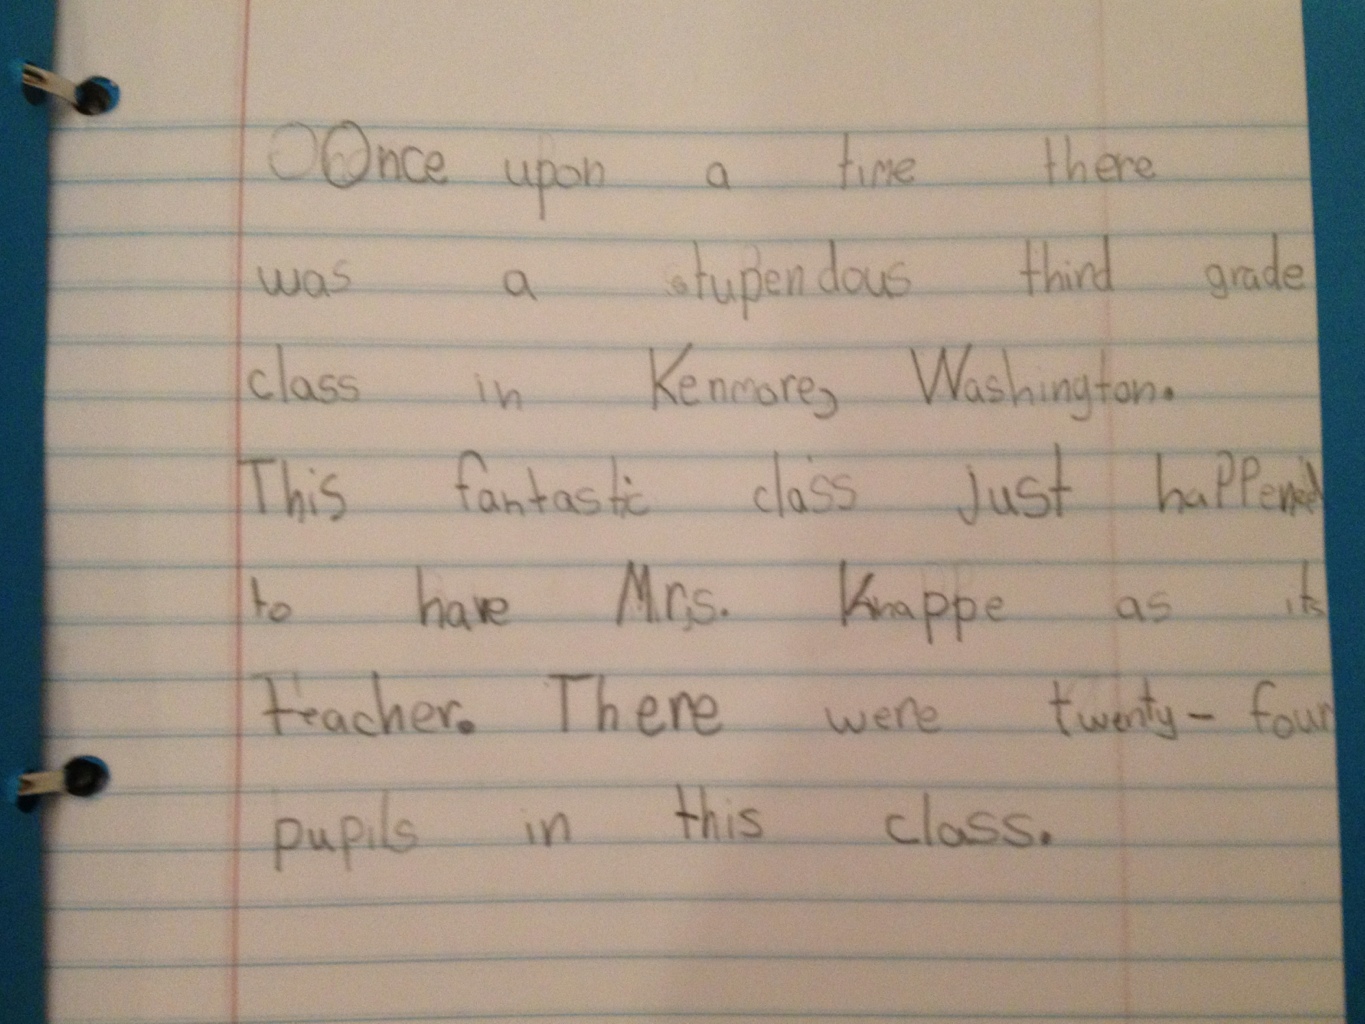 Once upon a time there
was a stupendous third grade
class in Kenmore, Washington.
This fantastic class just happened
to have Mrs. Knappe as its
teacher. There were twenty-four
pupils in this class.